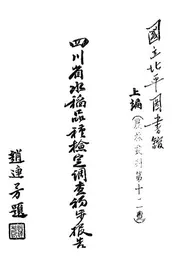 國立北平圖書館
上編(農林叢刊第十二號)
四川省水稻品種檢定調查初步報告
趙連芳題